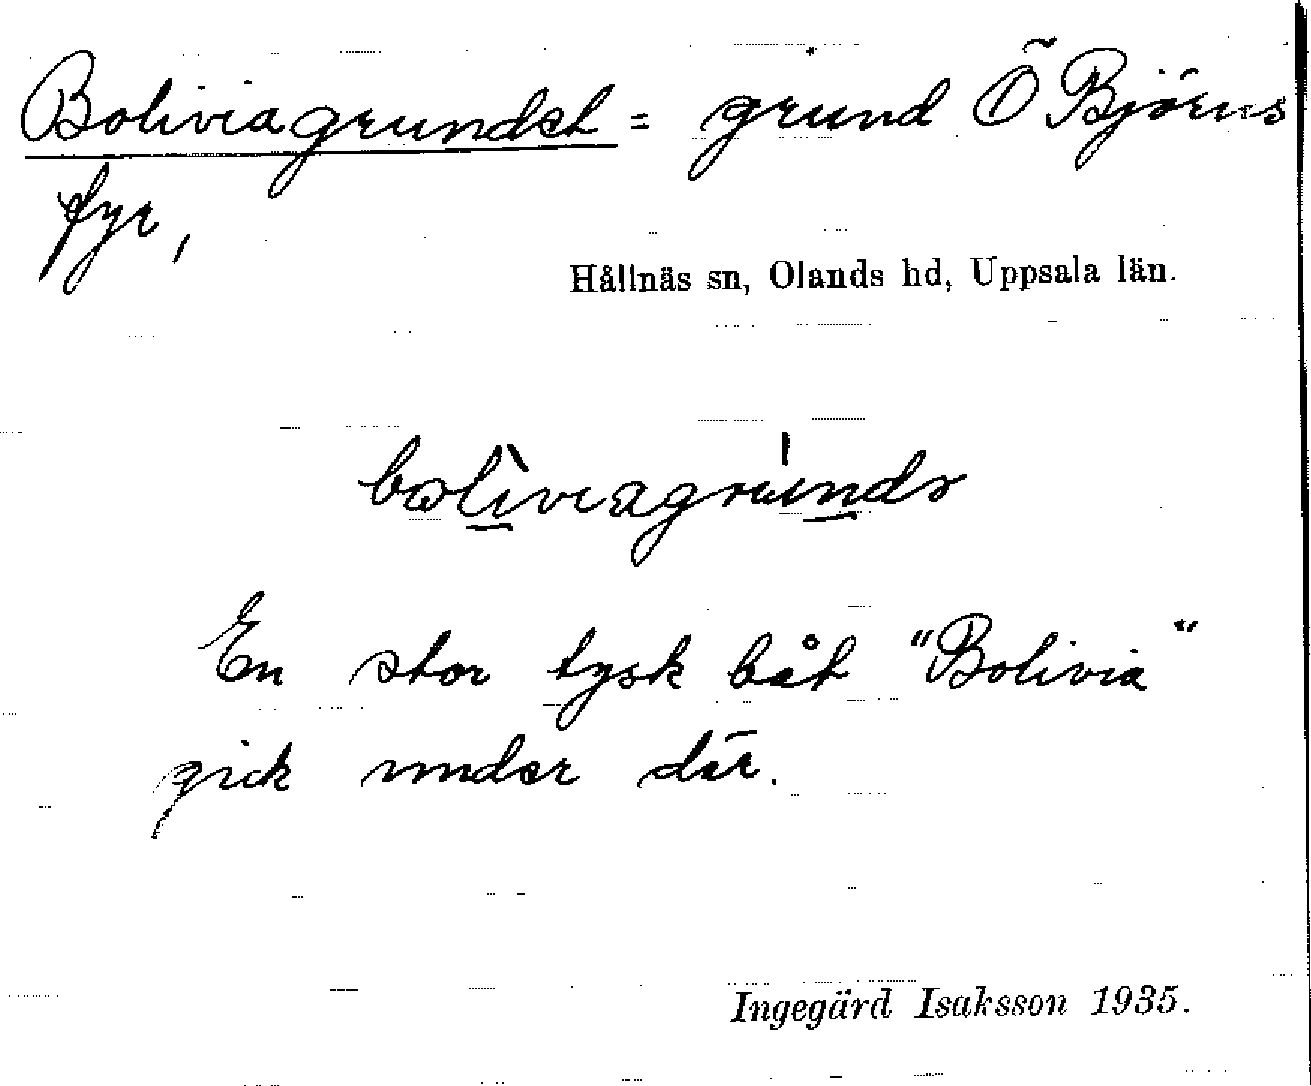 Boliviagrundet = grund Ö Björns
fyr,
Hållnäs sn, Olands hd, Uppsala län.
En stor tysk båt "Bolivia"
gick under där.
Ingegärd Isaksson 1935.